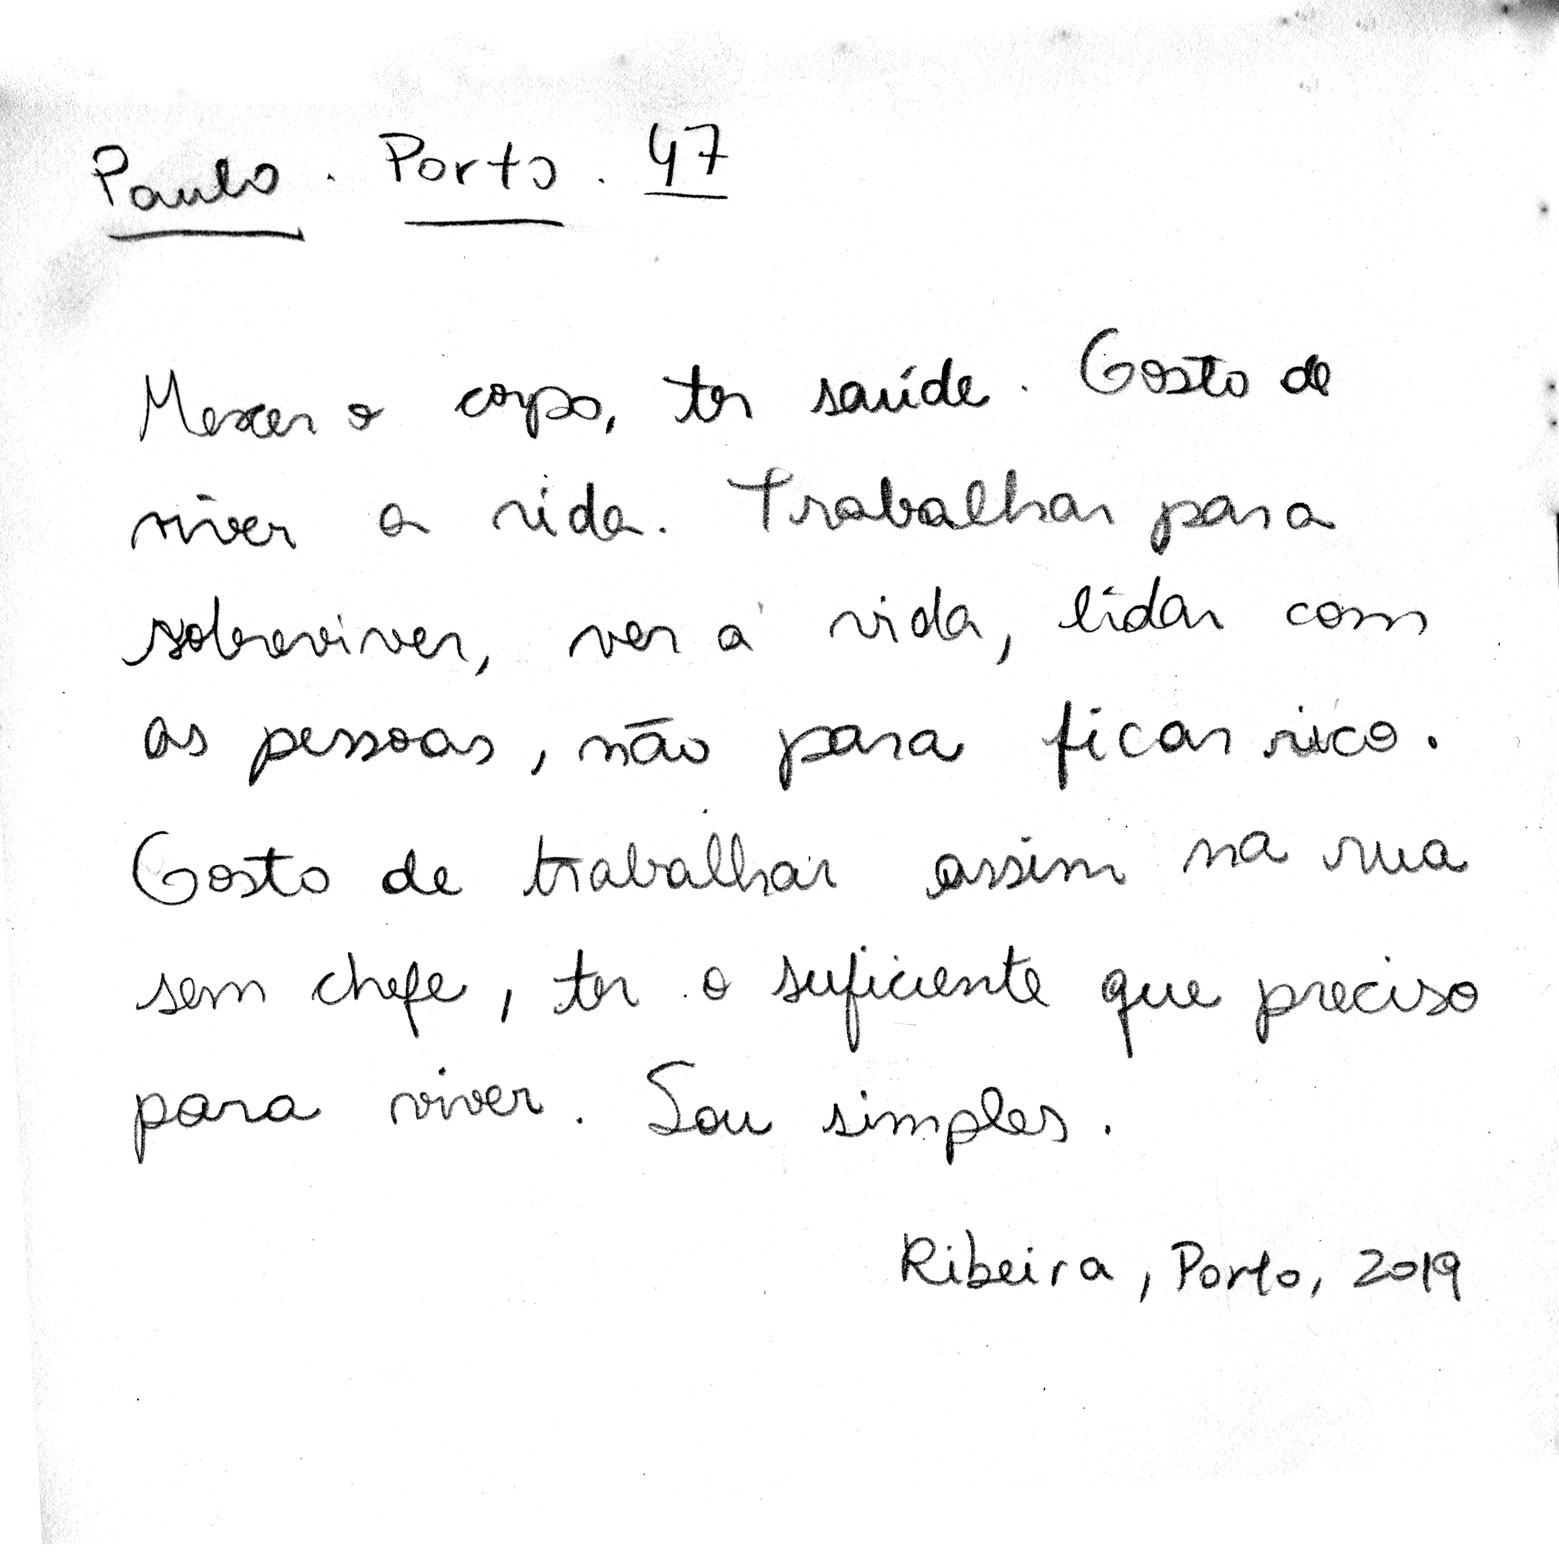 Paulo . Porto . 47
Mexer o corpo, ter saúde. Gosto de
viver a vida. Trabalhar para
sobreviver, ver a vida, lidar com
as pessoas, não para ficar rico.
Gosto de trabalhar assim na rua
sem chefe, ter o suficiente que preciso
para viver. Sou simples.
Ribeira, Porto, 2019